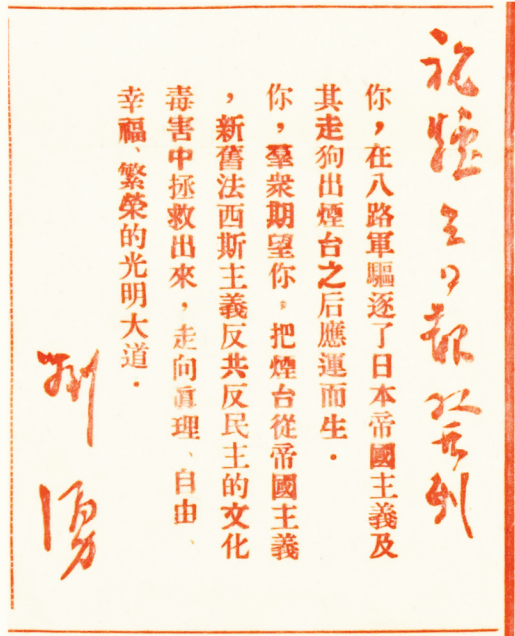 祝煙台日報發刊
你，在八路軍驅逐了日本帝國主義及
其走狗出煙台之后應運而生．
你，羣衆期望你，把煙台從帝國主義
，新舊法西斯主義反共反民主的文化
毒害中拯救出來，走向眞理、自由、
幸福、繁榮的光明大道．
劉湧